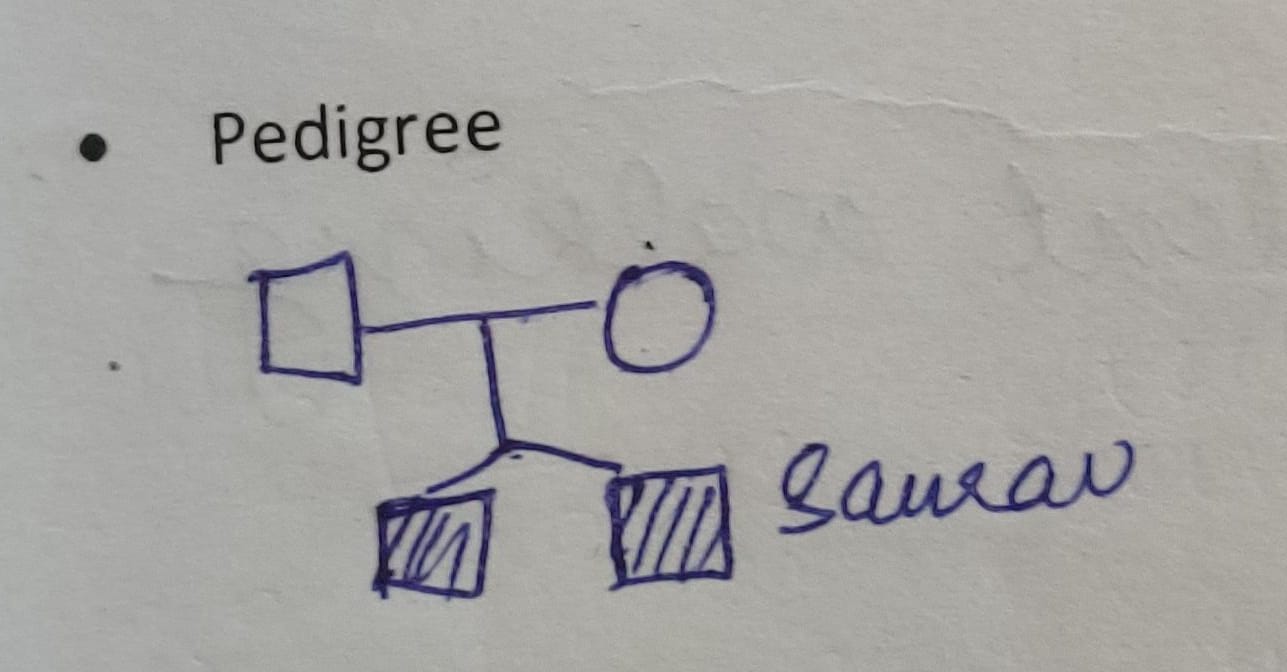 • Pedigree
Saurav